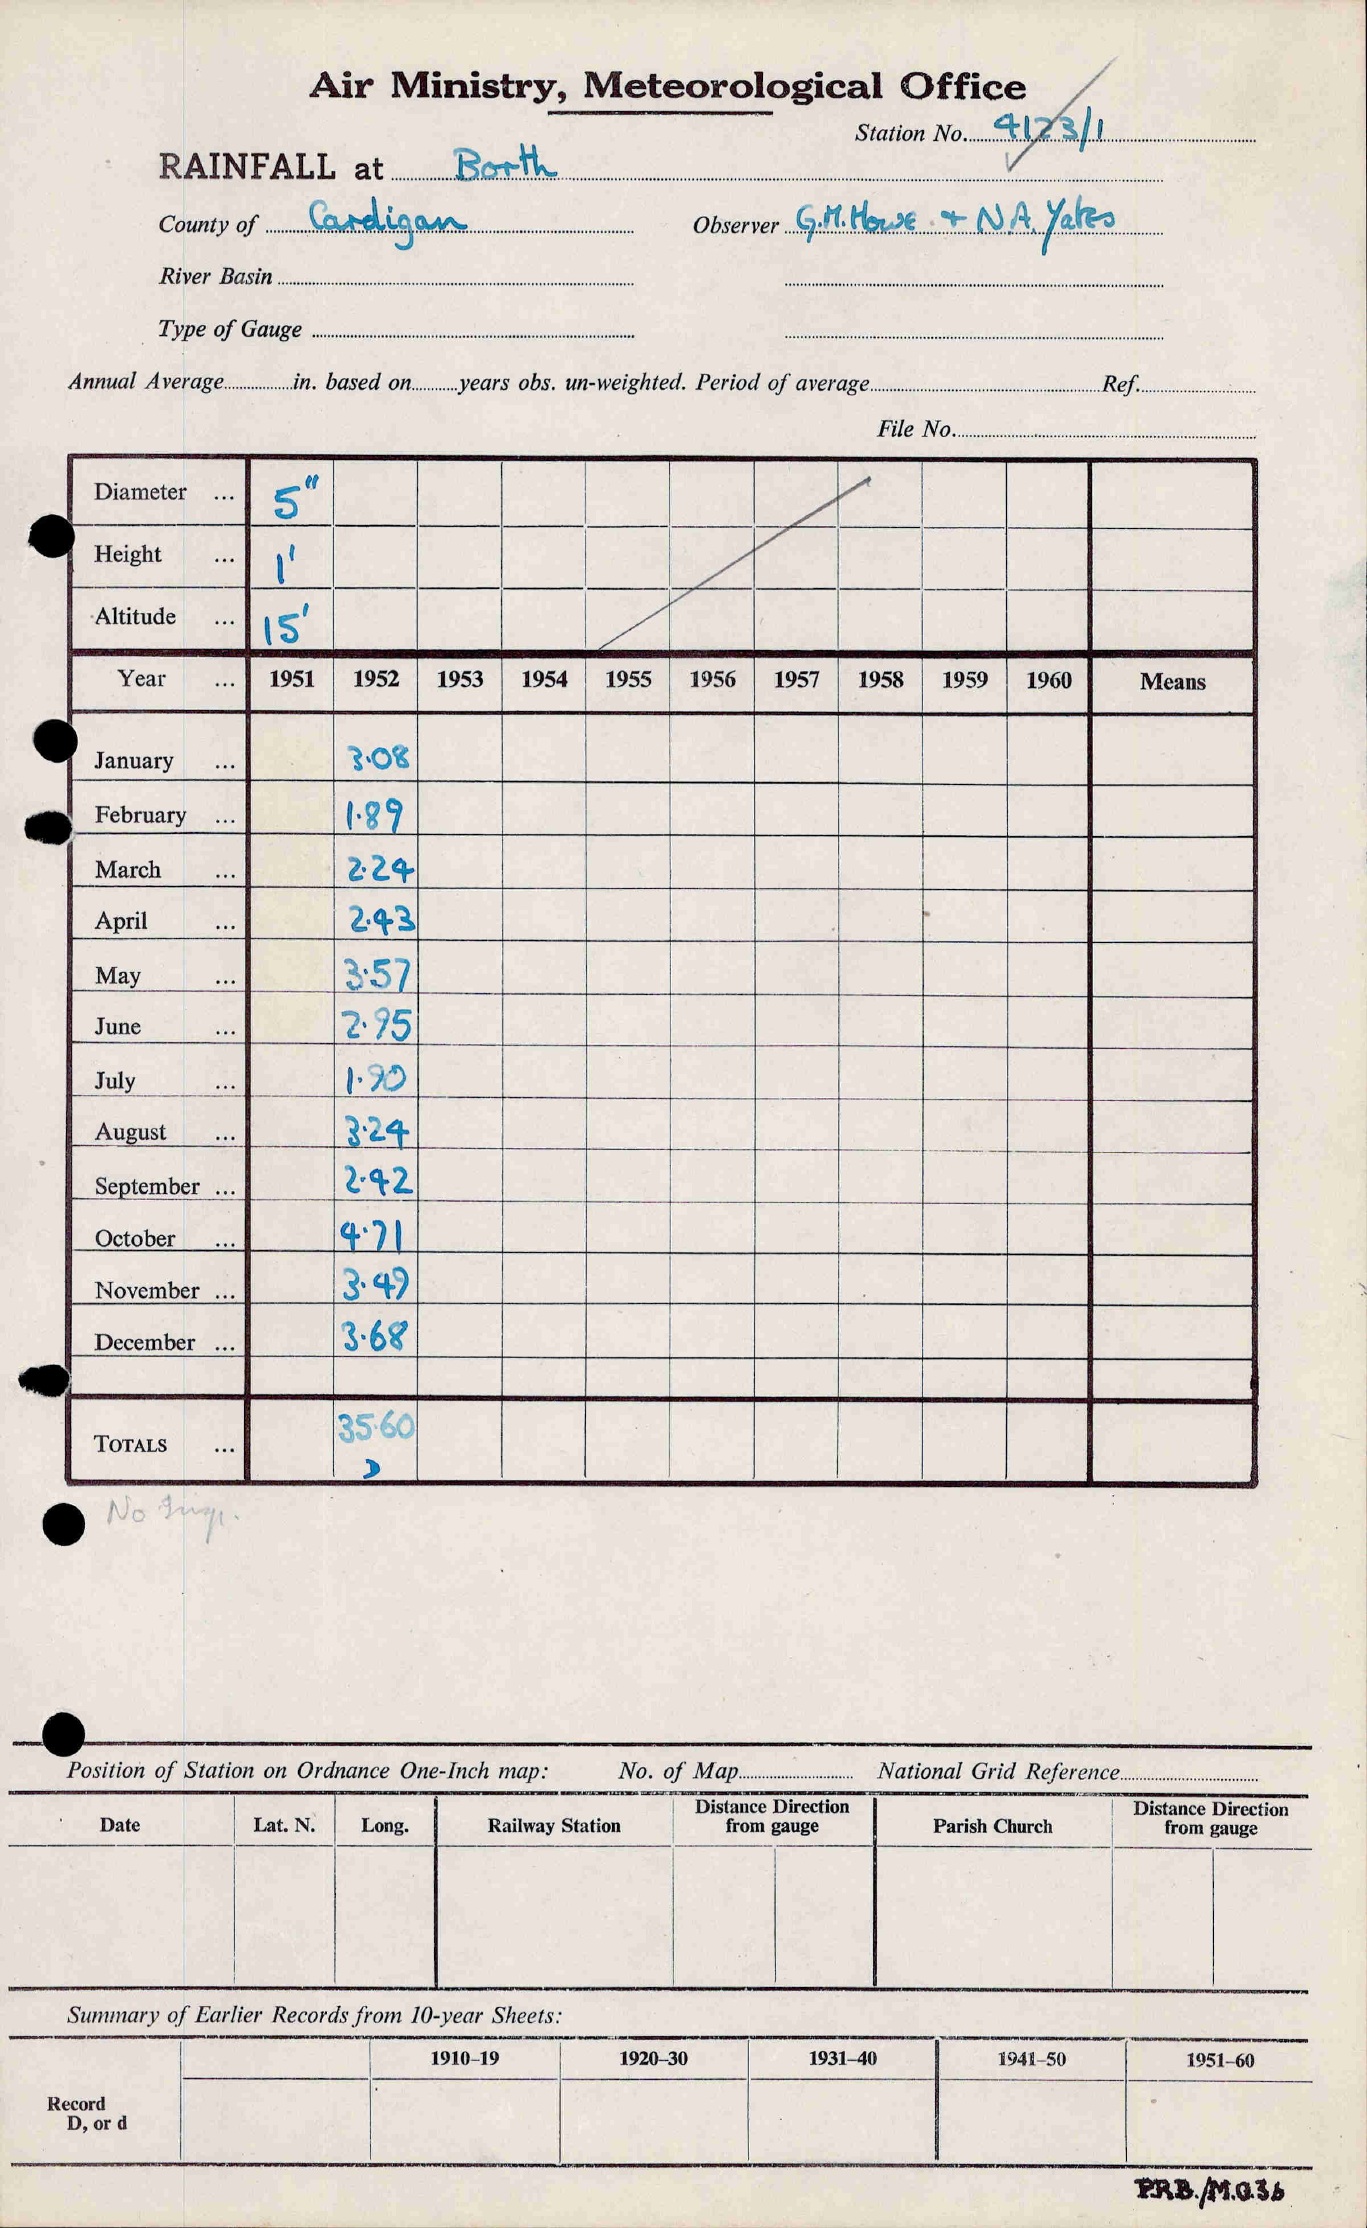 Air Ministry, Meteorological Office
Station No. 4123/1
RAINFALL at Borth
County of Cardigan Observer G.M.Howe + N.A. Yates
River Basin
Type of Gauge
Annual Average in. based on years obs. un-weighted. Period of average Ref.
File No.
Diameter ... 5"
Height ... 1'
Altitude ... 15'
Year ... 1951 1952 1953 1954 1955 1956 1957 1958 1959 1960 Means
January ... 3.08
February ... 1.89
March ... 2.24
April ... 2.43
May ... 3.57
June ... 2.95
July ... 1.90
August ... 3.24
September ... 2.42
October ... 4.71
November ... 3.49
December ... 3.68
TOTALS ... 35.60
D
No
Position of Station on Ordnance One-Inch map: No. of Map National Grid Reference
Date Lat. N. Long. Railway Station Distance Direction from gauge Parish Church Distance Direction from gauge
Summary of Earlier Records from 10-year Sheets:
1910–19 1920–30 1931–40 1941–50 1951–60
Record
D, or d
P.R.B./M.O.36